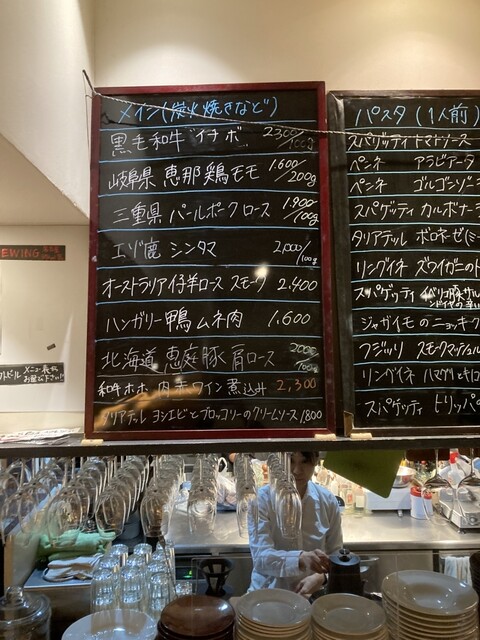 メイン(炭火焼きなど)
黒毛和牛 イチボ 2300/100g
岐阜県 恵那鶏モモ 1.600/200g
三重県 パールポークロース 1.900/100g
エゾ鹿 シンタマ 2,000/100g
オーストラリア仔羊ロース スモーク 2.400
ハンガリー鴨ムネ肉 1.600
北海道 恵庭豚 肩ロース 2000/100g
和牛ホホ肉赤ワイン煮込み 2,300
タリアテッレ ヨシエビとブロッコリーのクリームソース 1800
パスタ(1人前)
スパゲッティ トマトソース
ペンネ アラビアータ
ペンネ ゴルゴンゾーラ
スパゲッティ カルボナーラ
タリアテッレ ボロネーゼ(ミー
リングイネ ズワイガニのト
スパゲッティ イベリコ豚サル
ジャガイモのニョッキ
フジッリ スモークマッシュル
リングイネ ハマグリとキノコ
スパゲッティ トリッパ
EWING
メニュー表に
お戻し下さい!